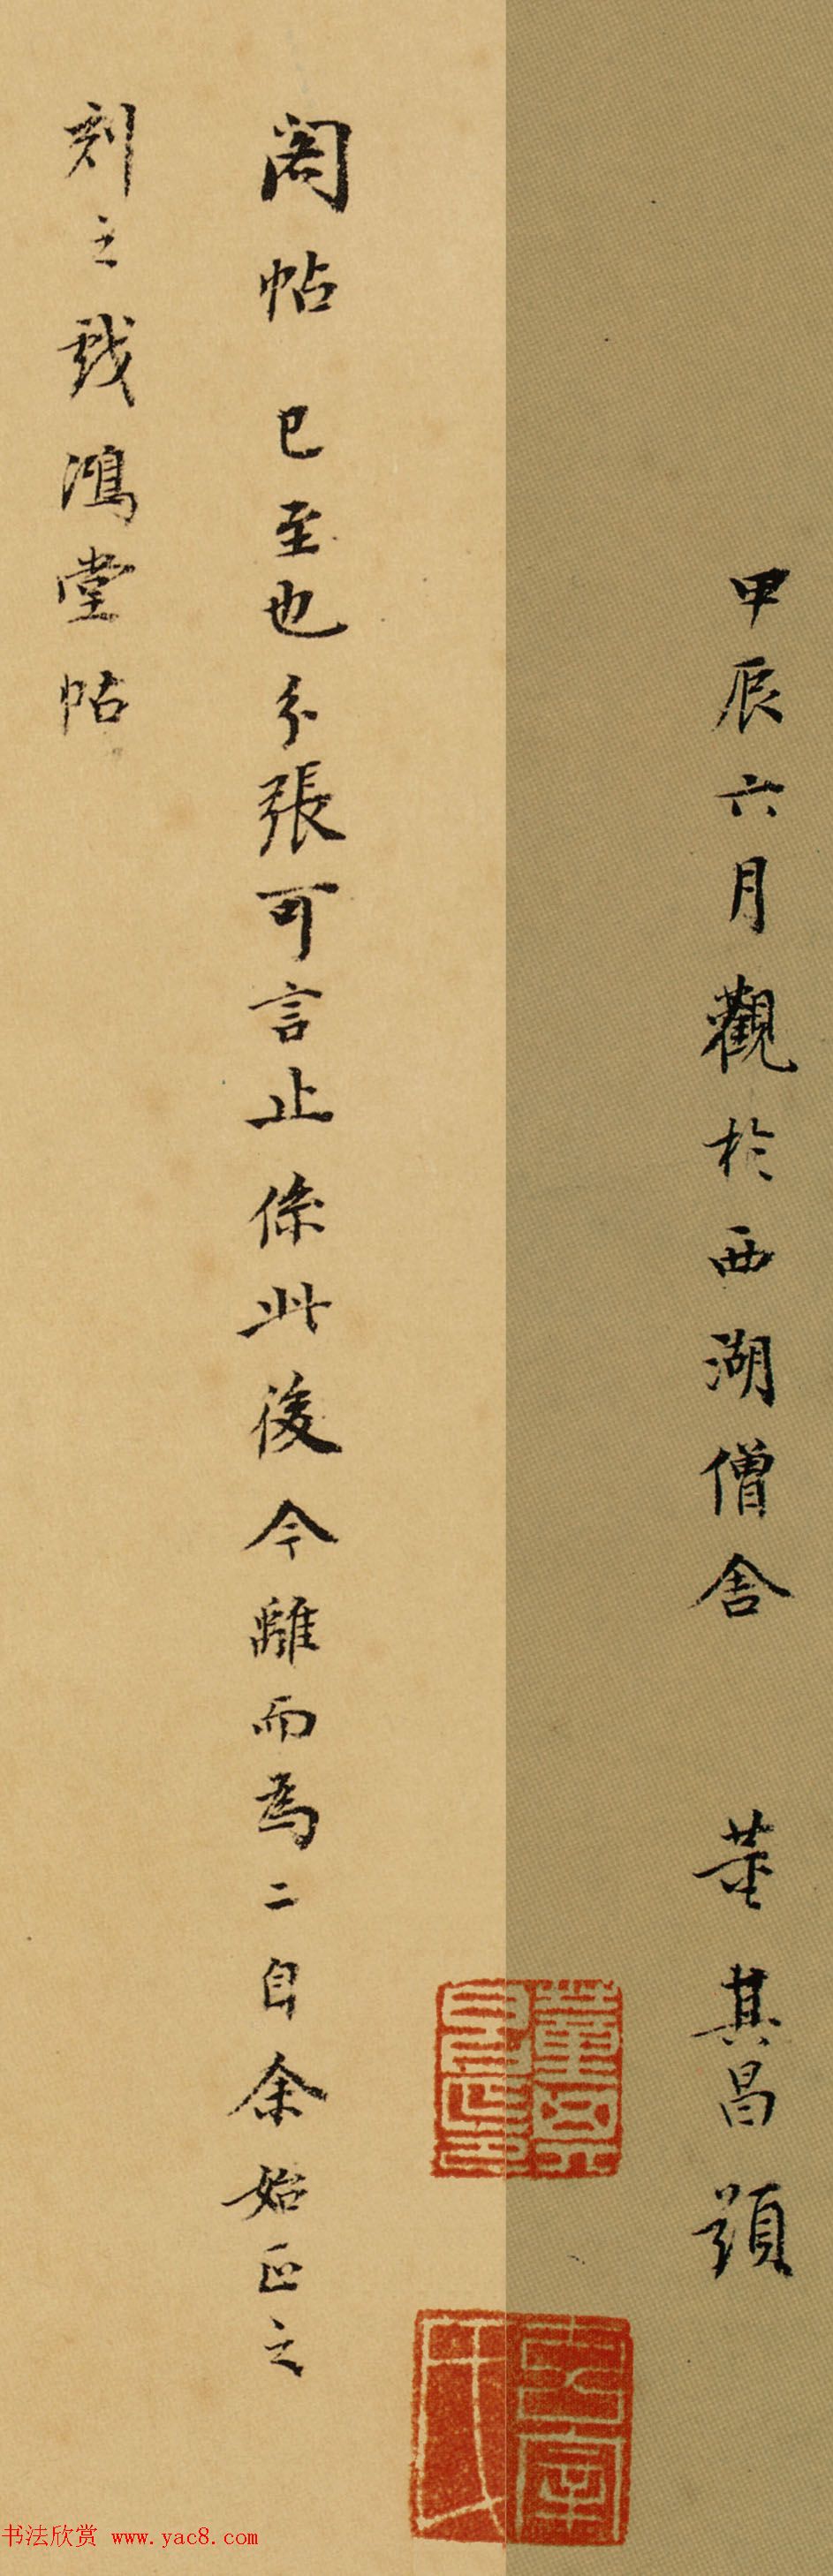 甲辰六月觀於西湖僧舍　董其昌題
閣帖已至也分張可言止係此後今離而為二自余始正之
刻之戲鴻堂帖
書法欣赏 www.yac8.com